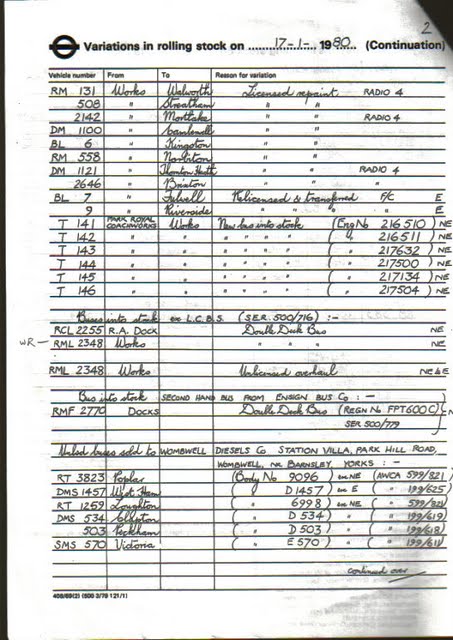 2
Variations in rolling stock on 17-1- 1980 (Continuation)
Vehicle number From To Reason for variation
RM 131 Works Walworth Licensed repaint RADIO 4
508 " Streatham " "
2142 " Mortlake " " RADIO 4
DM 1100 " Camberwell " "
BL 6 " Kingston " "
RM 558 " Norbiton " "
DM 1121 " Thornton Heath " " RADIO 4
2646 " Brixton " " "
BL 7 " Fulwell Relicensed & transferred F/C E
9 " Riverside " " " " E
T 141 PARK ROYAL COACHWORKS Works New bus into stock (Eng No 216510) NE
T 142 " " " " " " ( " 216511) NE
T 143 " " " " " " ( " 217632) NE
T 144 " " " " " " ( " 217500) NE
T 145 " " " " " " ( " 217134) NE
T 146 " " " " " " ( " 217504) NE
Buses into stock ex L.C.B.S. (SER. 500/716) :-
RCL 2255 R.A. DOCK Double Deck Bus NE
WR - RML 2348 Works " " " NE
RML 2348 Works Unlicensed overhaul NE & E
Bus into stock SECOND HAND BUS FROM ENSIGN BUS Co :-
RMF 2770 DOCKS Double Deck Bus (REGN No FPT600C)
SER 500/779
buses sold to WOMBWELL DIESELS Co STATION VILLA, PARK HILL ROAD,
WOMBWELL, NR BARNSLEY, YORKS :-
RT 3823 Poplar (Body No 9096) ex NE (AWCA 599/821)
DMS 1457 West Ham ( " D1457) ex E ( " 199/625)
RT 1259 Loughton ( " 6998) ex NE ( " 599/821)
DMS 534 Clapton ( " D534) " ( " 199/619)
503 Peckham ( " D503) " ( " 199/618)
SMS 570 Victoria ( " E570) " ( " 199/611)
continued over
409/69(2) (500 3/79 121/1)